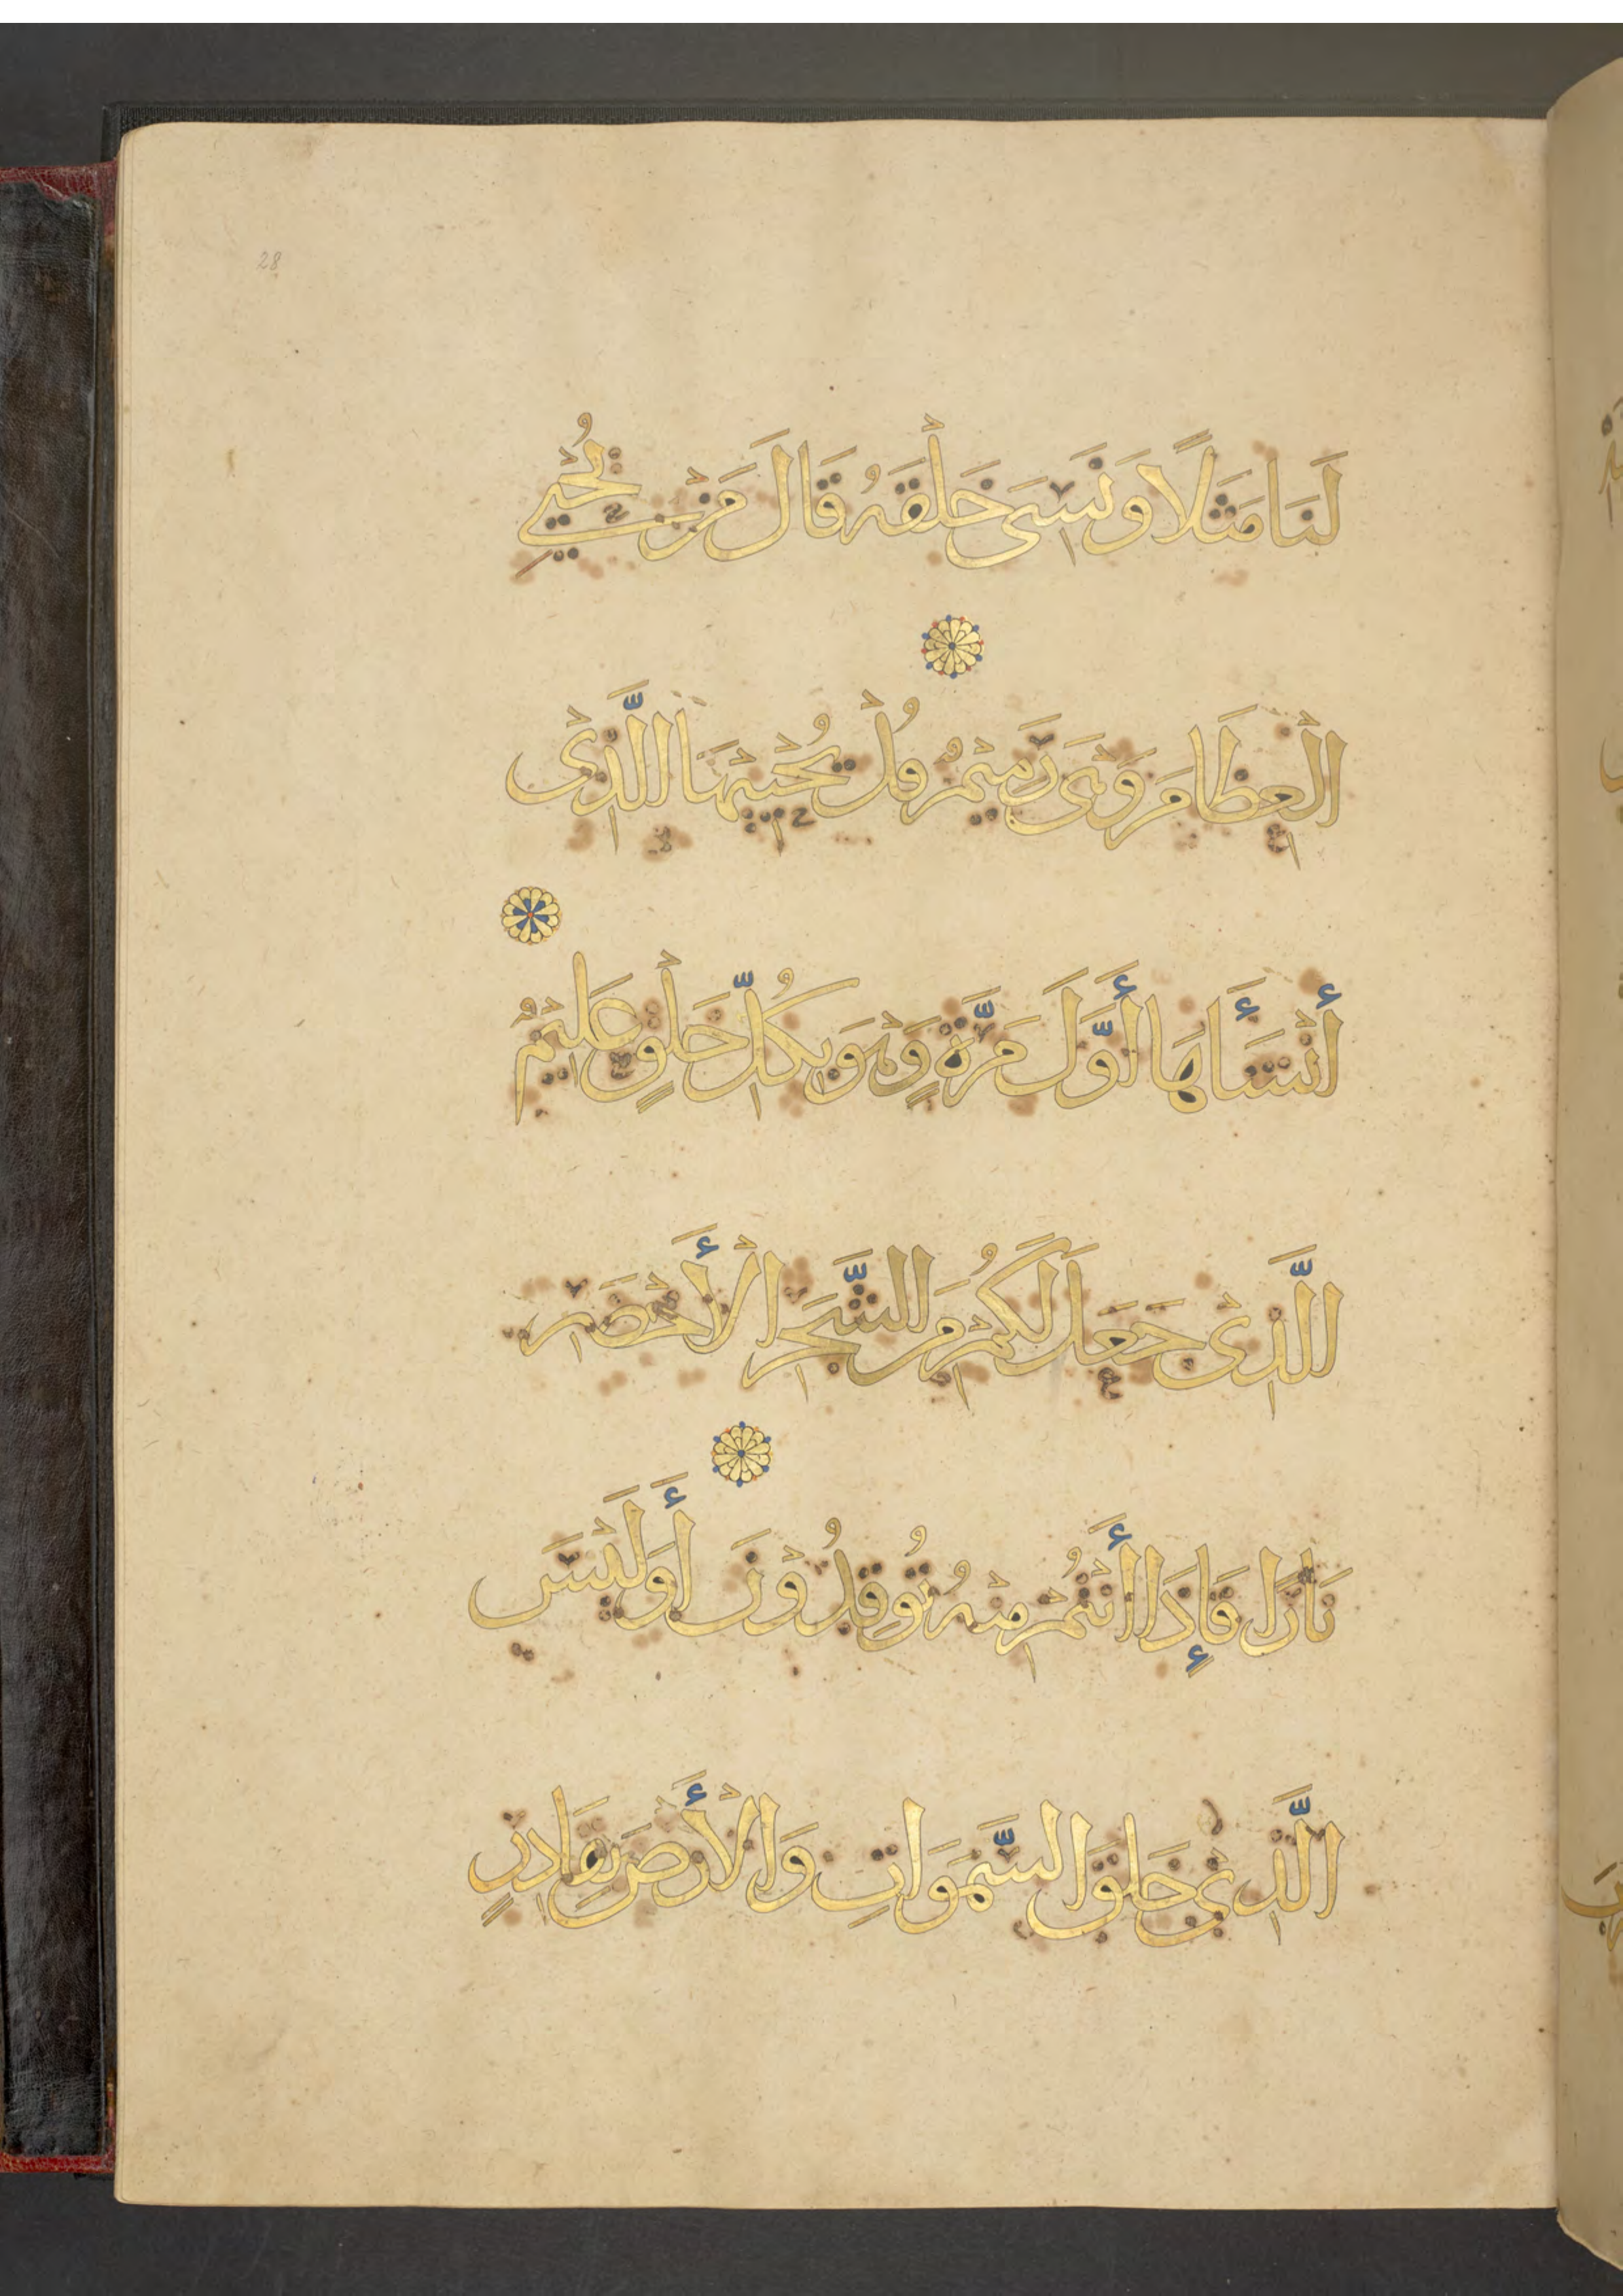 28
لَنَا مَثَلًا وَنَسِيَ خَلْقَهُ قَالَ مَنْ يُحْيِي
الْعِظَامَ وَهْيَ رَمِيْمٌ قُلْ يُحْيِيْهَا الَّذِيْ
أَنْشَأَهَا أَوَّلَ مَرَّةٍ وَهْوَ بِكُلِّ خَلْقٍ عَلِيْمٌ
الَّذِيْ جَعَلَ لَكُمْ مِنَ الشَّجَرِ الْأَخْضَرِ
نَارًا فَإِذَا أَنْتُمْ مِنْهُ تُوْقِدُوْنَ أَوَلَيْسَ
الَّذِيْ خَلَقَ السَّمَوَاتِ وَالْأَرْضَ بِقَادِرٍ